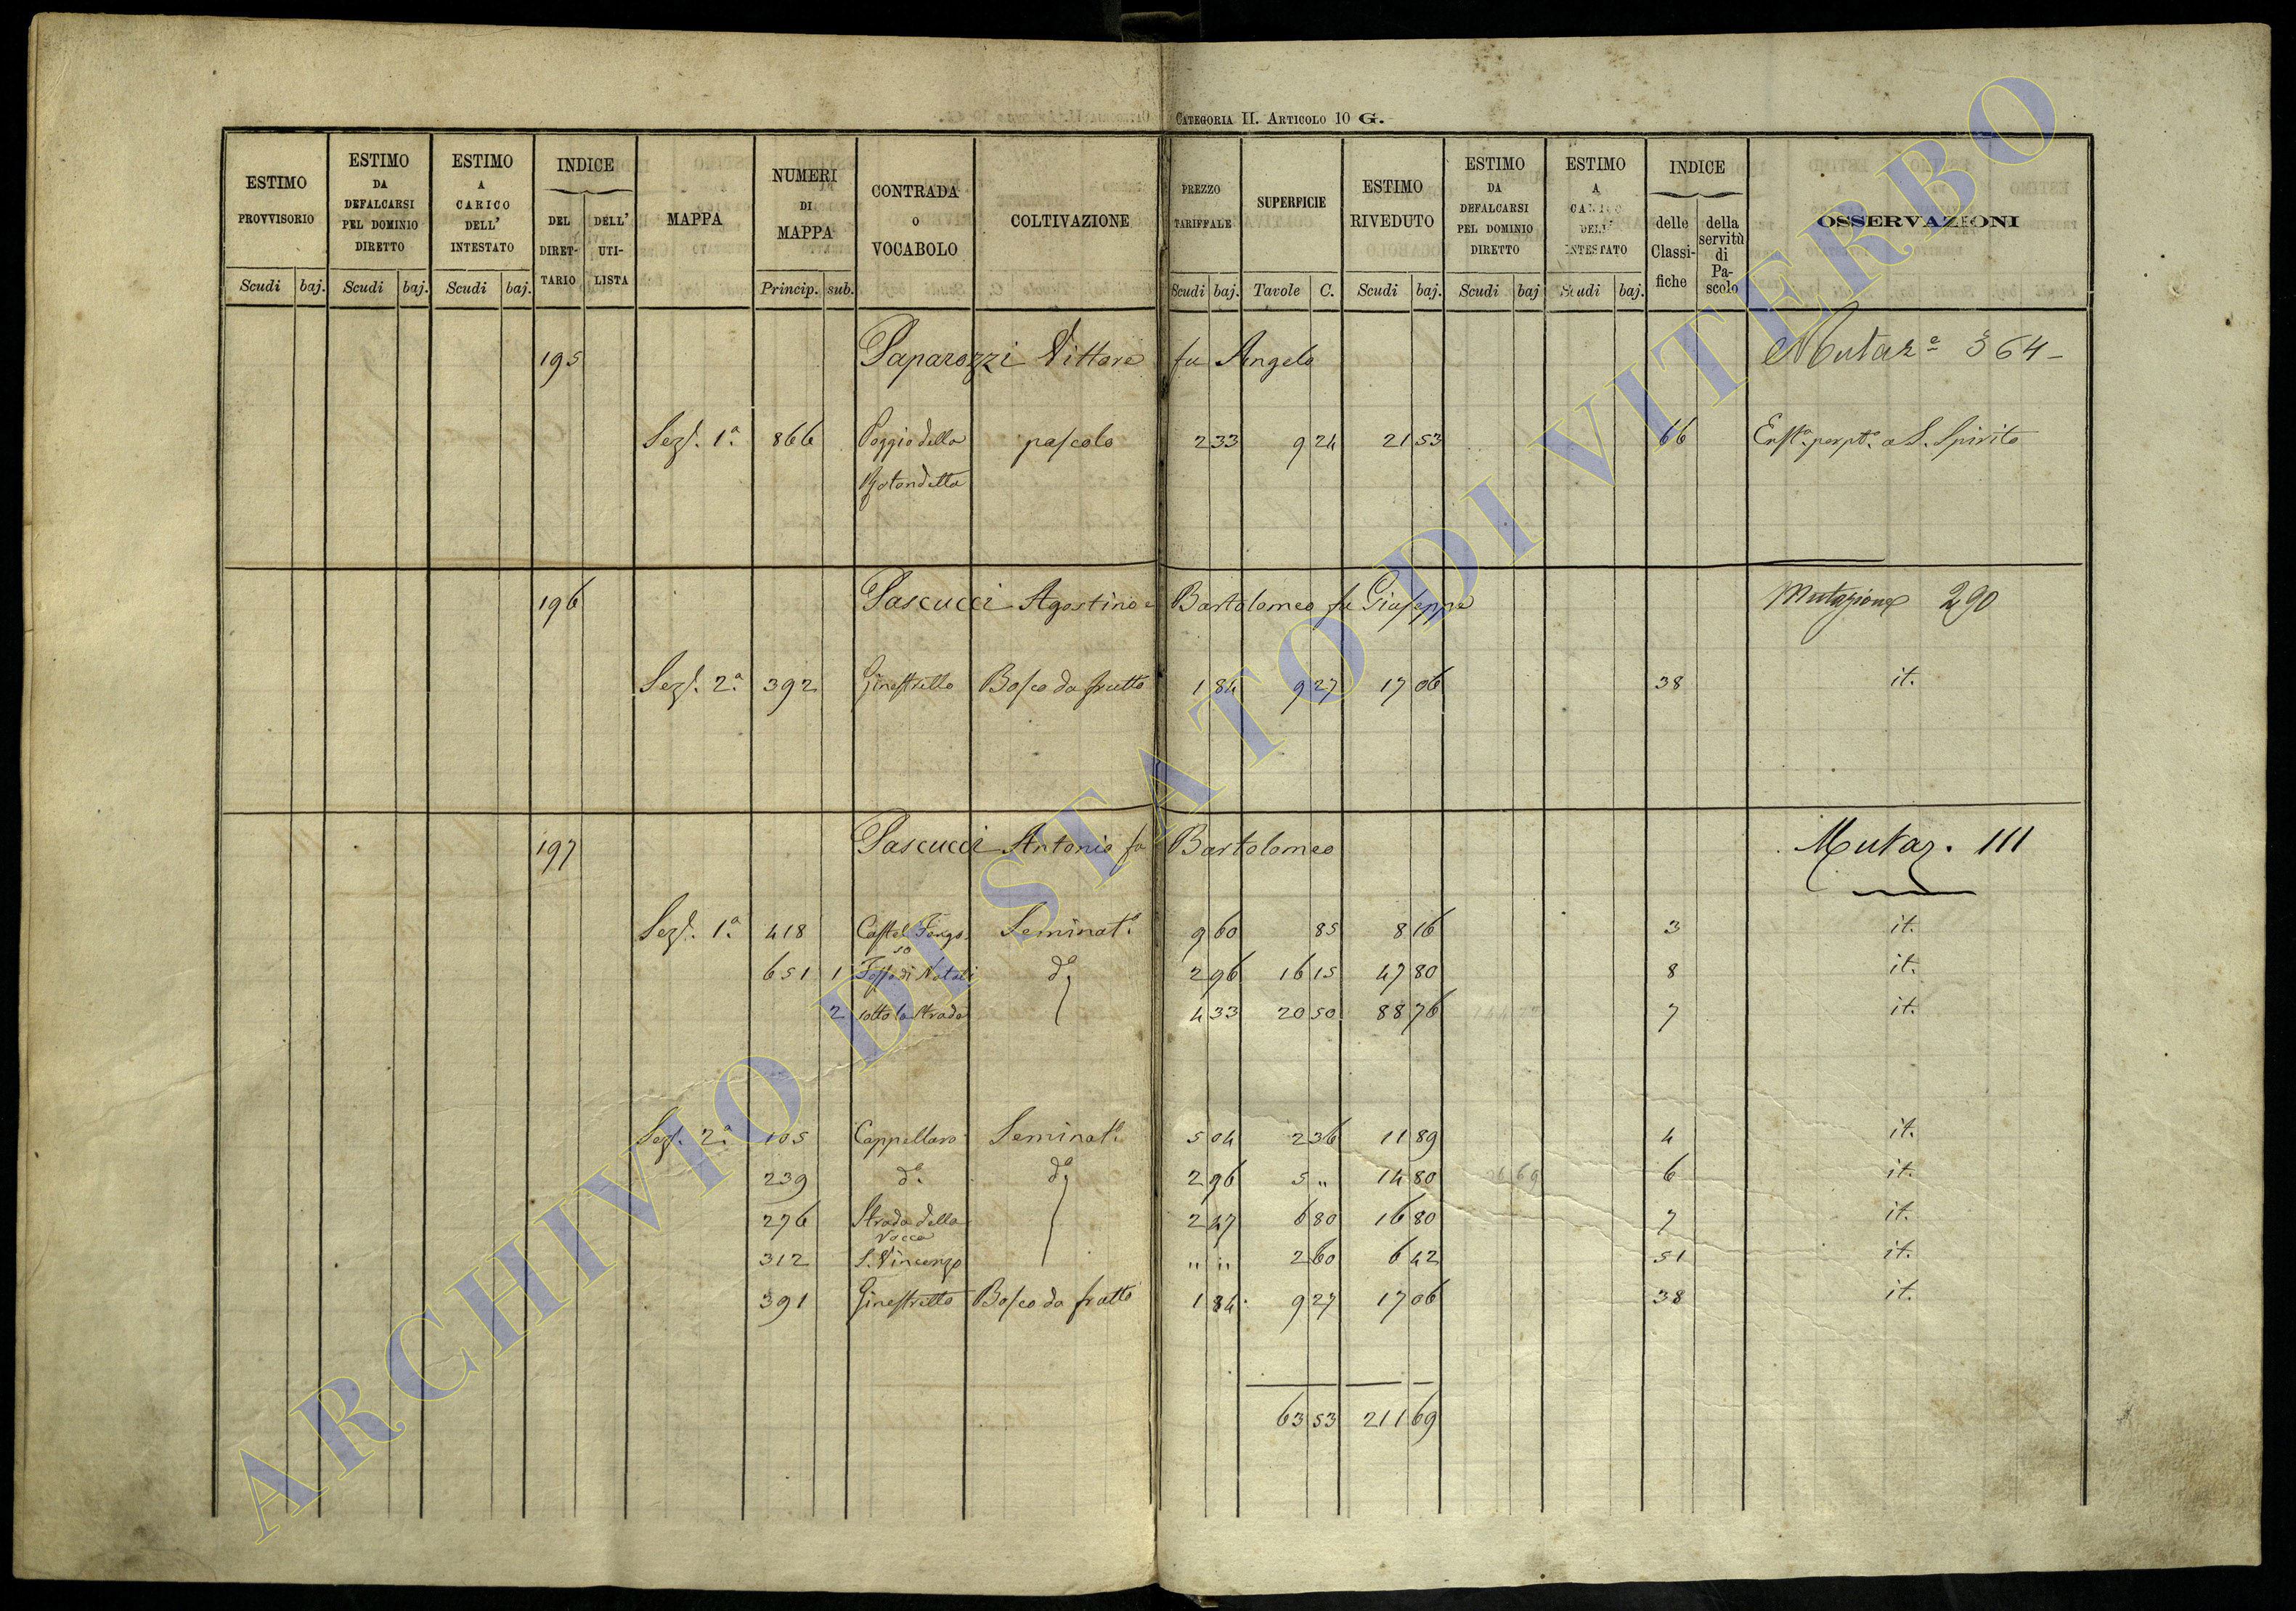 CATEGORIA II. ARTICOLO 10 G.
ESTIMO PROVVISORIO
Scudi baj.
ESTIMO DA DEFALCARSI PEL DOMINIO DIRETTO
Scudi baj.
ESTIMO A CARICO DELL' INTESTATO
Scudi baj.
INDICE
DEL DIRET-TARIO
DELL' UTI-LISTA
MAPPA
NUMERI DI MAPPA
Princip. sub.
CONTRADA O VOCABOLO
COLTIVAZIONE
PREZZO TARIFFALE
Scudi baj.
SUPERFICIE
Tavole C.
ESTIMO RIVEDUTO
Scudi baj.
ESTIMO DA DEFALCARSI PEL DOMINIO DIRETTO
Scudi baj
ESTIMO A CARICO DELL' INTESTATO
Scudi baj.
INDICE
delle Classi-fiche
della servitù di Pa-scolo
OSSERVAZIONI
195 Paparozzi Vittore fu Angelo Mutaz.e 364
Sez. 1a. 866 Poggio della pascolo 2 33 9 24 21 53 66 Enft.a perpt.a a S. Spirito
Rotondella
196 Pascucci Agostino e Bartolomeo fu Giuseppe Mutazione 290
Sez. 2a. 392 Ginestretto Bosco da frutto 1 84 9 27 17 06 38 it.
197 Pascucci Antonio fu Bartolomeo Mutaz. 111
Sez. 1a. 418 Castel Fongo- Seminat.o 9 60 85 8 16 3 it.
so
651 1 Fosso di Natali d.o 2 96 16 15 47 80 8 it.
2 sotto la Strada 4 33 20 50 88 76 7 it.
Sez. 2a. 105 Cappellaro Seminat.o 5 04 2 36 11 89 4 it.
239 d.o d.o 2 96 5 " 14 80 6 it.
276 Strada della 2 47 6 80 16 80 7 it.
Vacca
312 S. Vincenzo " " 2 60 6 42 51 it.
391 Ginestretto Bosco da frutto 1 84 9 27 17 06 38 it.
63 53 211 69
ARCHIVIO DI STATO DI VITERBO